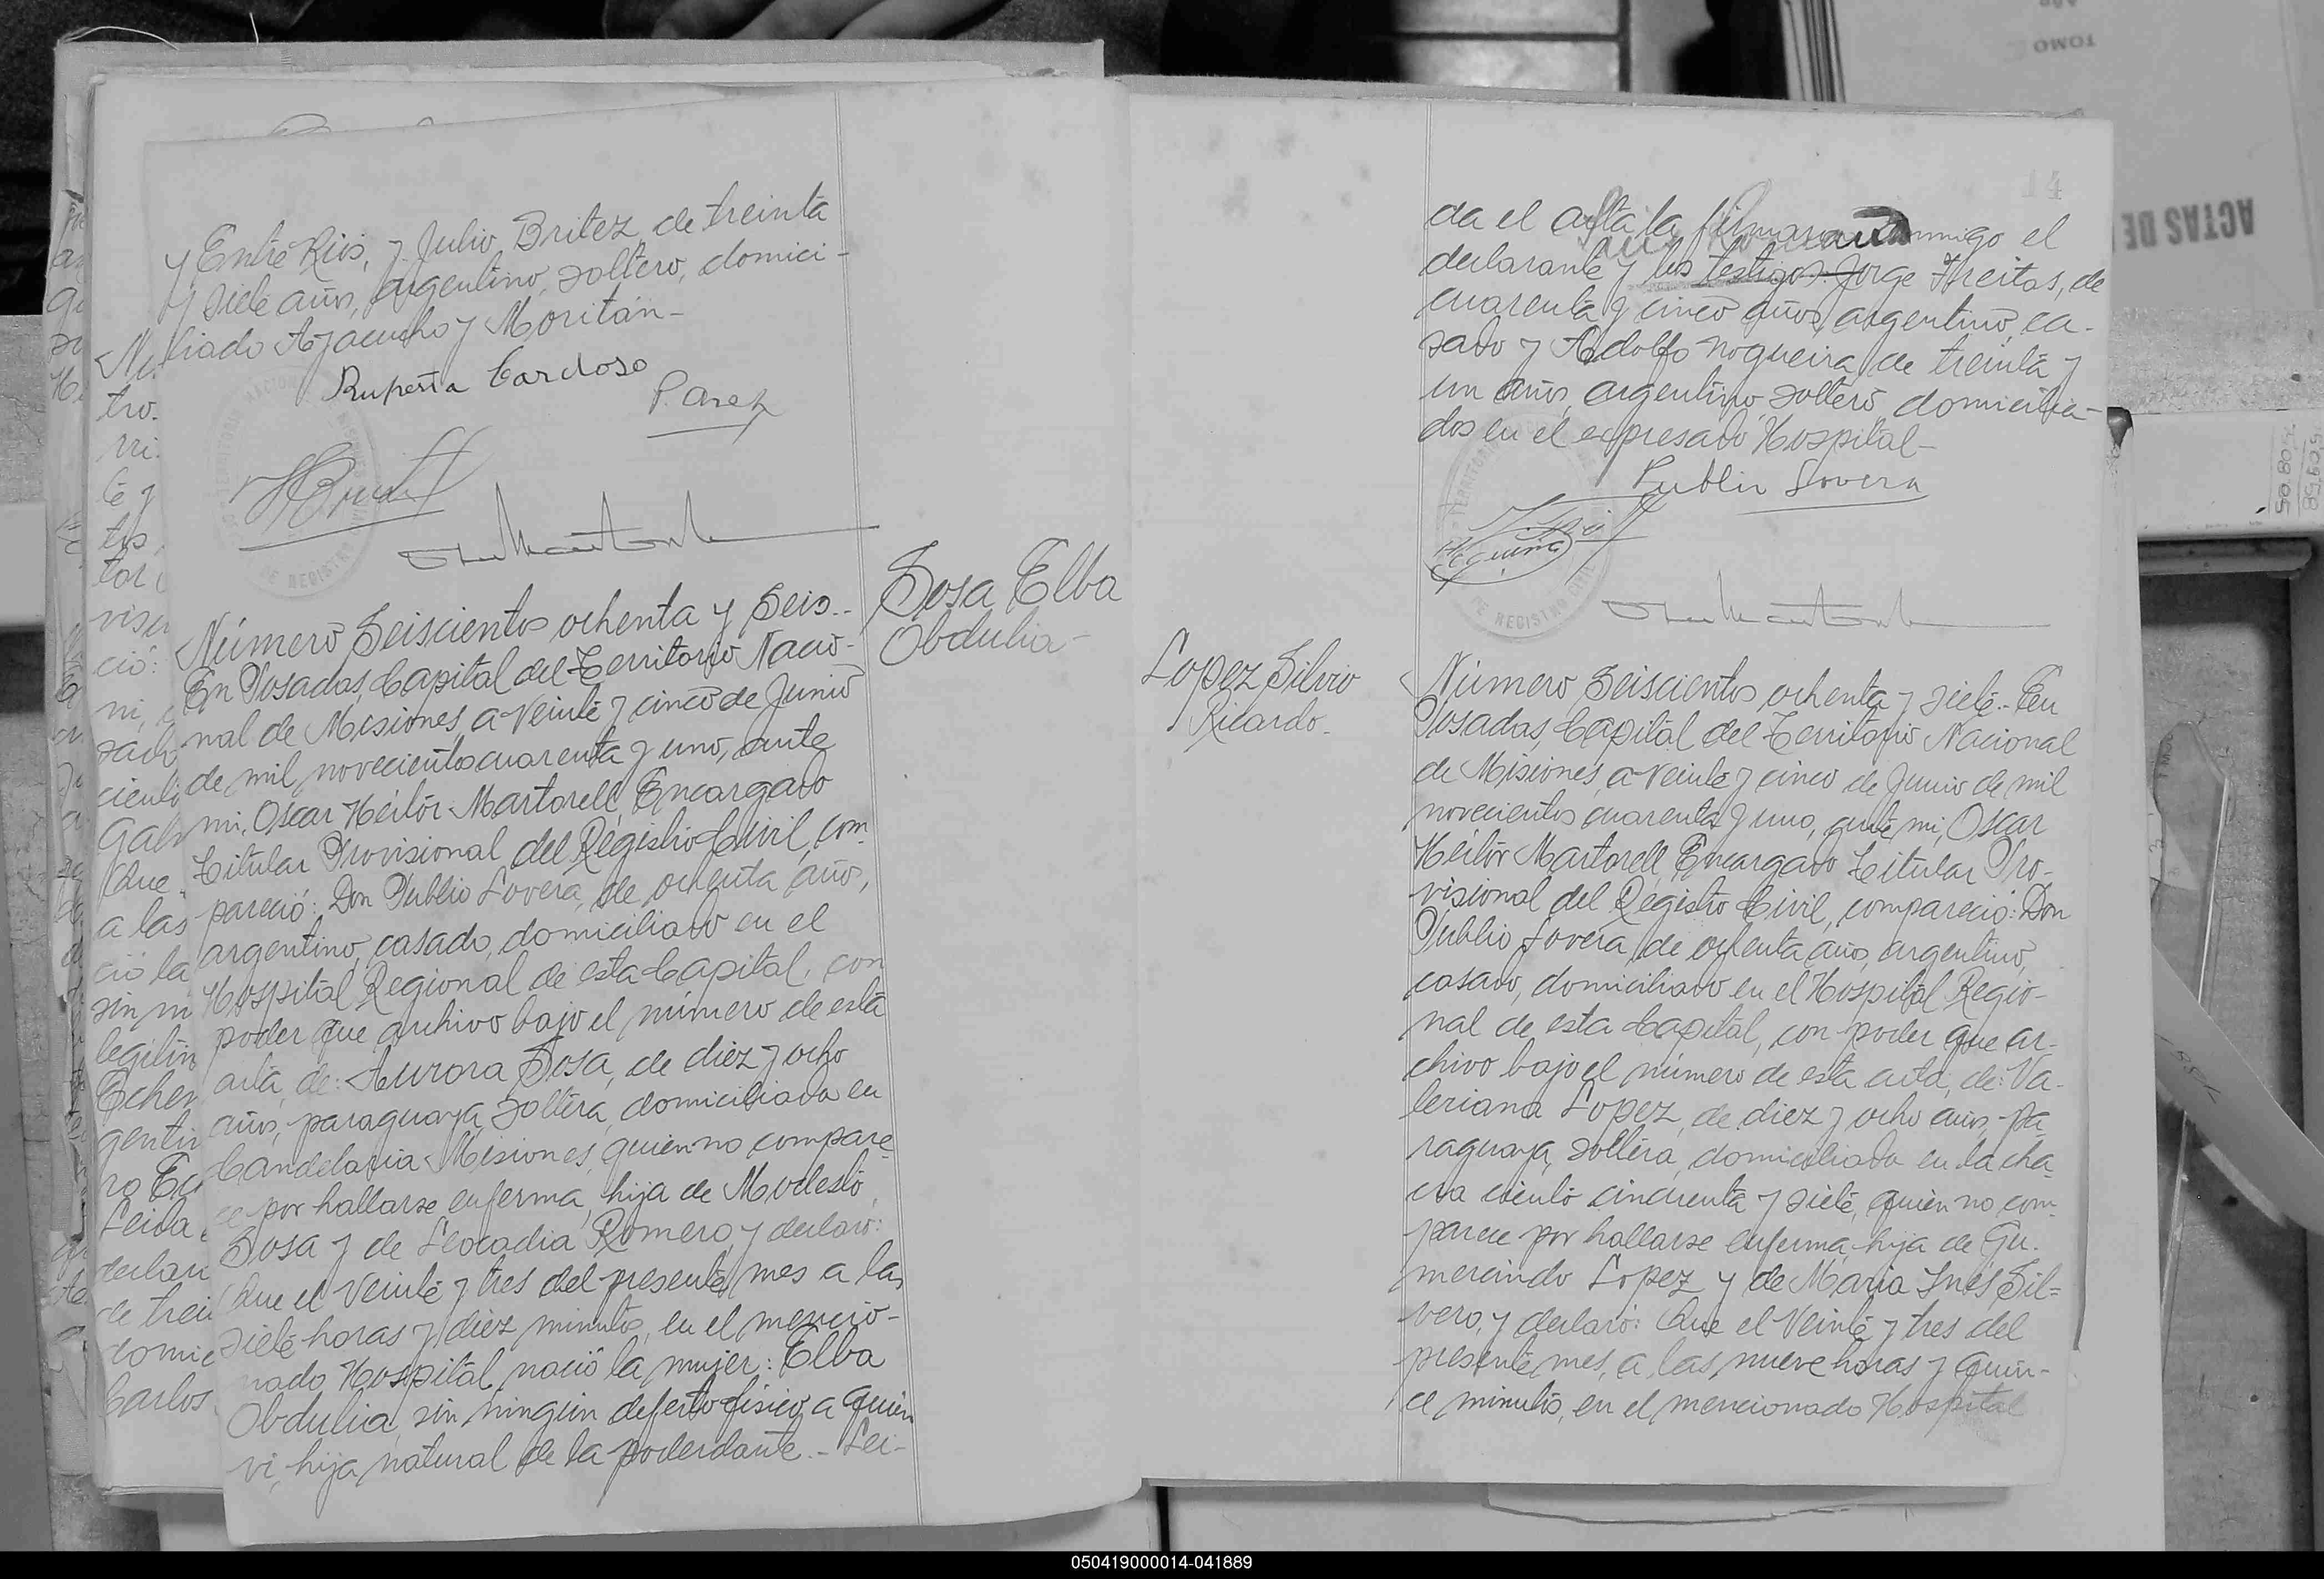 y Entre Rios, y Julio Britez de treinta
y siete años, argentino, soltero, domici-
liado Ayacucho y Moritán-
Ruperta Cardoso
P. Arez
DE REGISTRO
Número Seiscientos ochenta y Seis.-
En Posadas, Capital del Territorio Nacio-
nal de Misiones, a Veinte y cinco de Junio
de mil novecientos cuarenta y uno, ante
mi, Oscar Héctor Martorell, Encargado
Titular Provisional del Registro Civil, com-
pareció: Don Publio Lovera, de ochenta años,
argentino, casado, domiciliado en el
Hospital Regional de esta Capital, con
poder que archivo bajo el número de esta
acta, de: Aurora Sosa, de diez y ocho
años, paraguaya, soltera, domiciliada en
Candelaria Misiones, quien no compare-
ce por hallarse enferma, hija de Modesto
Sosa y de Leocadia Romero, y declaró:
Que el Veinte y tres del presente mes a las
siete horas y diez minutos, en el mencio-
nado Hospital nació la mujer: Elba
Obdulia, sin ningún defecto físico, a quien
vi, hija natural de la poderdante.- Lei-
Sosa Elba
Obdulia-
14
da el acta la firmaron conmigo el
declarante y los testigos: Jorge Freitas, de
cuarenta y cinco años, argentino, ca-
sado y Adolfo Nogueira, de treinta y
un años, argentino, soltero, domicilia-
dos en el expresado Hospital-
Publio Lovera
DE REGISTRO CIVIL
Lopez Silvio
Ricardo-
Número Seiscientos ochenta y siete.- En
Posadas, Capital del Territorio Nacional
de Misiones, a Veinte y cinco de Junio de mil
novecientos cuarenta y uno, ante mi, Oscar
Héctor Martorell, Encargado Titular Pro-
visional del Registro Civil, compareció: Don
Publio Lovera, de ochenta años, argentino,
casado, domiciliado en el Hospital Regio-
nal de esta Capital, con poder que ar-
chivo bajo el número de esta acta, de: Va-
leriana Lopez, de diez y ocho años, pa-
raguaya, soltera, domiciliada en la cha-
cra ciento cincuenta y siete, quien no com-
parece por hallarse enferma, hija de Gu-
mercindo Lopez y de Maria Inés Sil=
vero, y declaró: Que el Veinte y tres del
presente mes, a las nueve horas y quin-
ce minutos, en el mencionado Hospital
TOMO
ACTAS DE
050419000014-041889